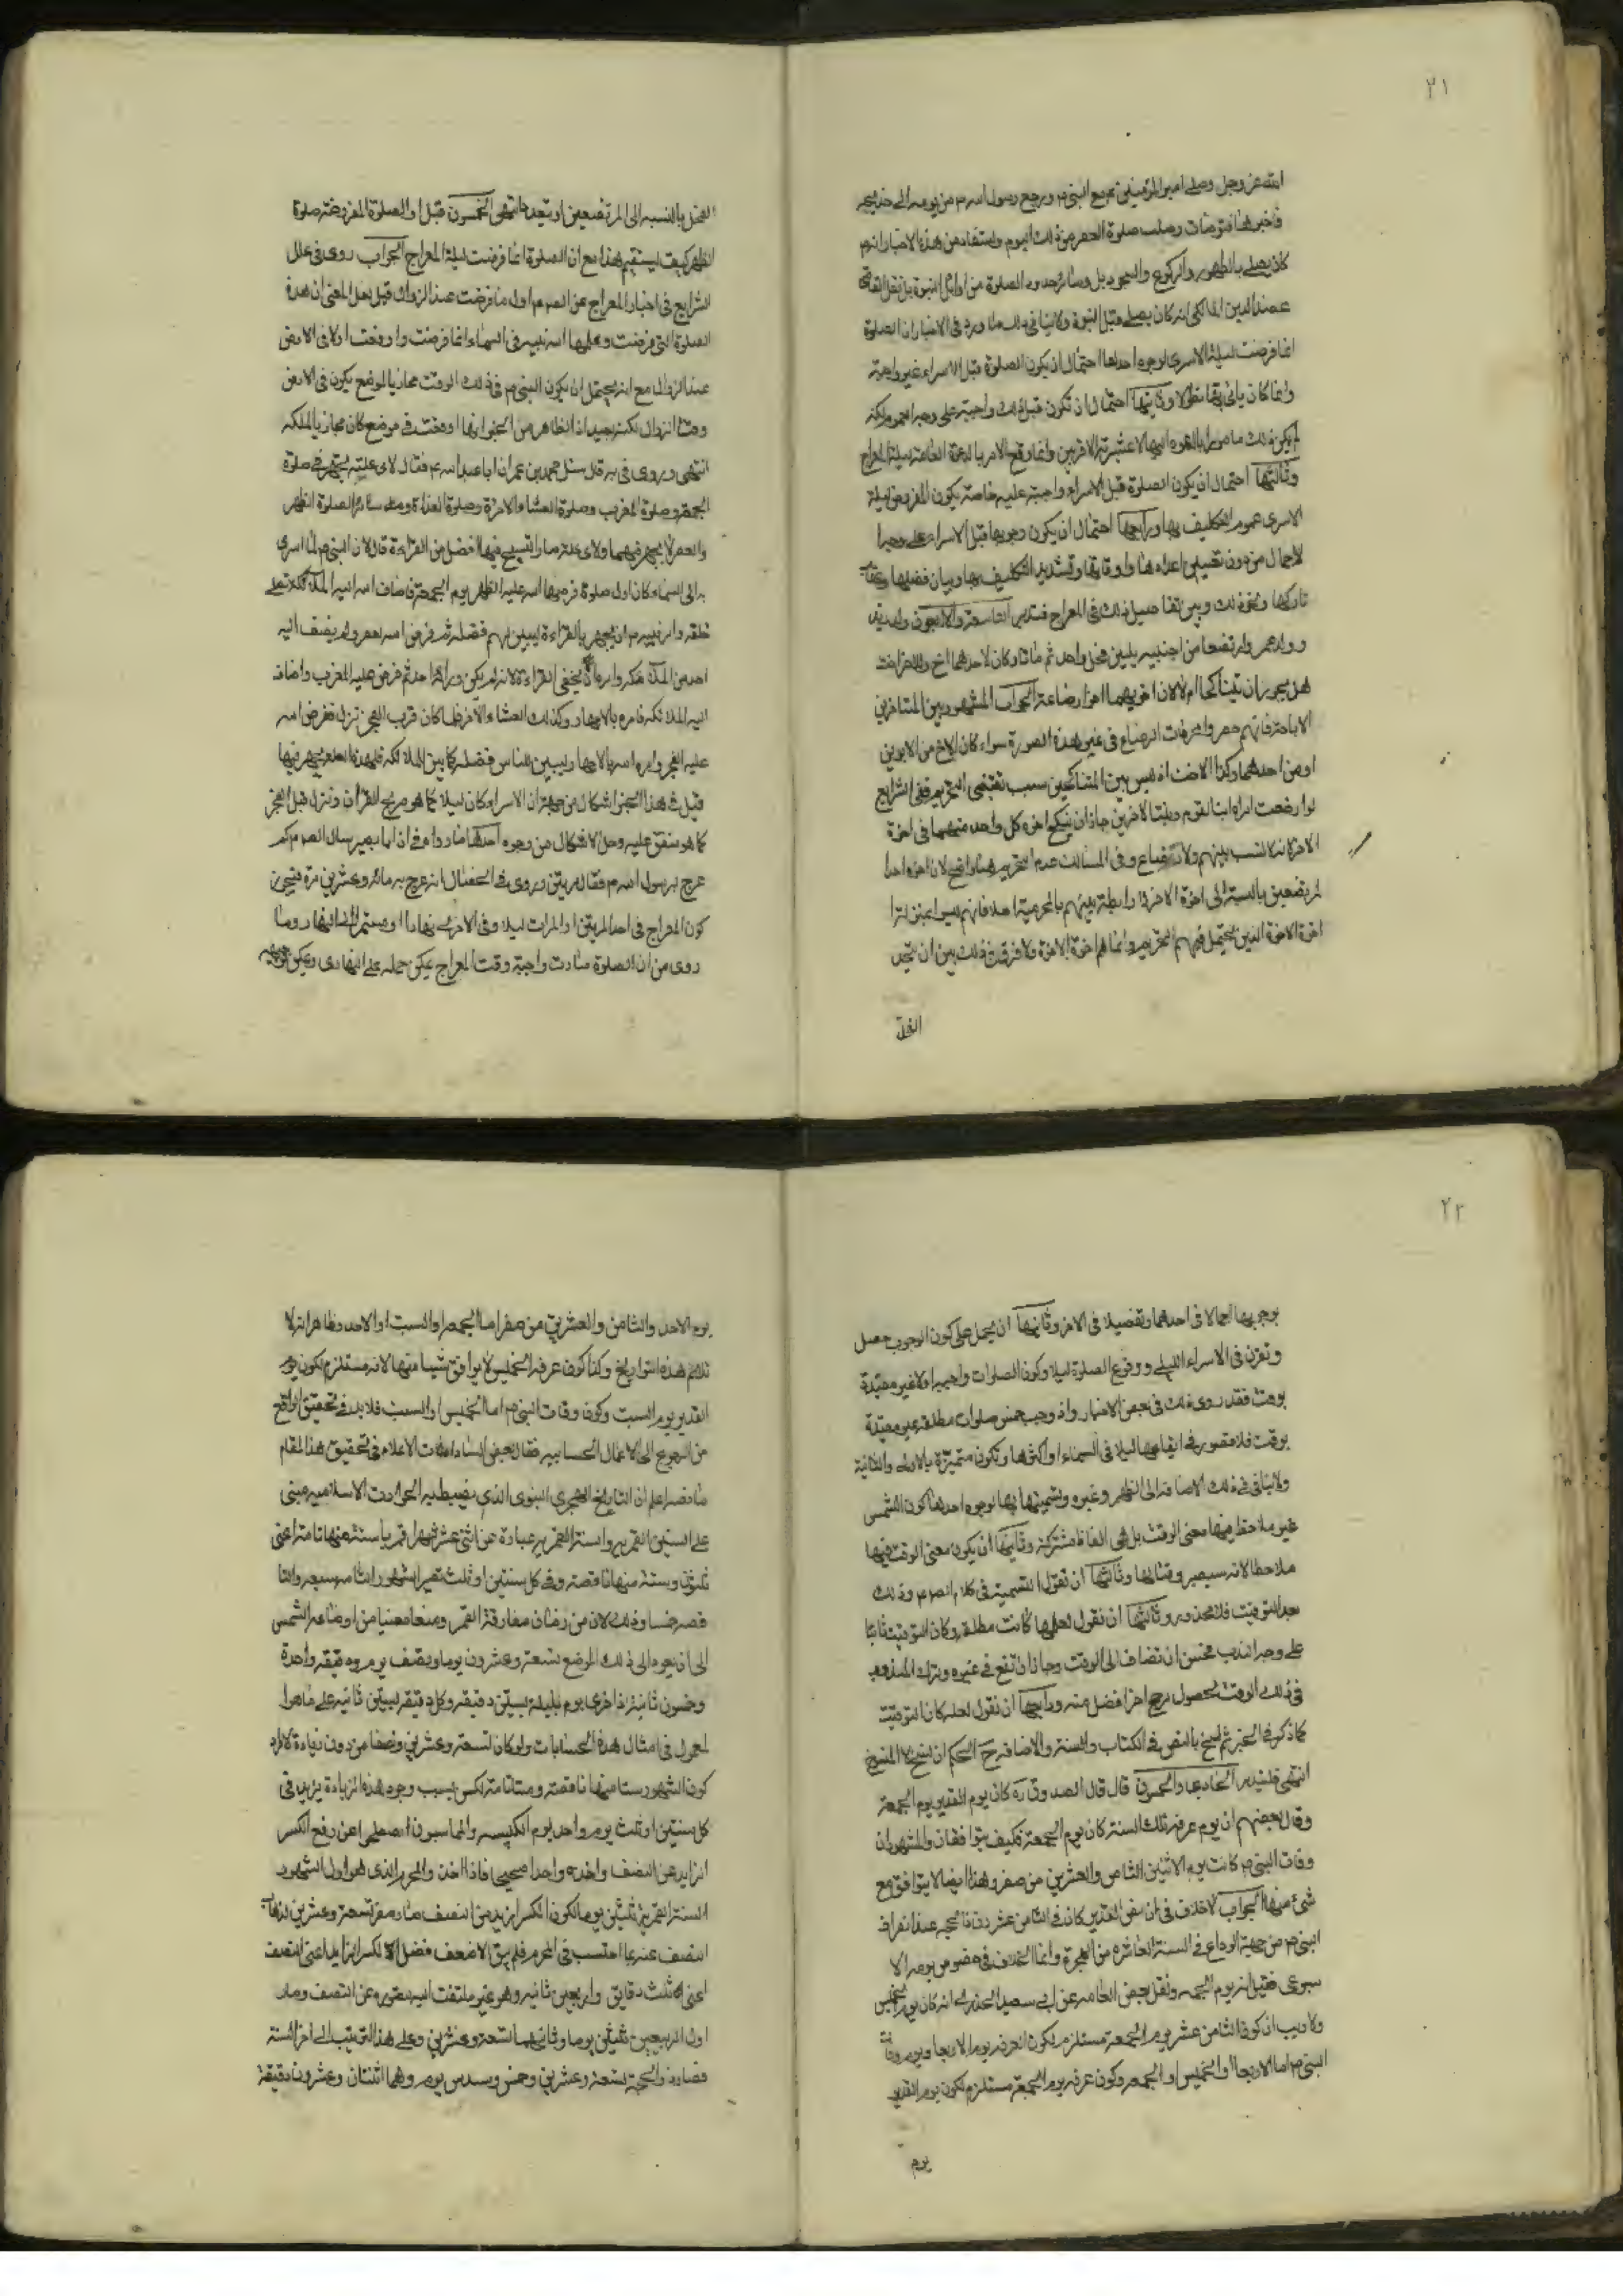 ٢١
الله عز وجل وصلى امير المؤمنين مع النبي م ورجع رسول الله م من يومه الى خديجه
فاخبرها فتوضأت وصلت صلوة العصر من ذلك اليوم ويستفاد من هذه الاخبار انه م
كان يصلي بالطهور والركوع والسجود بل وسائر حدود الصلوة من اوائل النبوة بل نقل القاضي
عضد الدين المالكي انه كان يصلي قبل النبوة ولا ينافي ذلك ما ورد في الاخبار ان الصلوة
انما فرضت ليلة الاسرى لوجوه احدها احتمال ان يكون الصلوة قبل الاسراء غير واجبة
وانما كان ياتي بها نفلا وثانيها احتمال ان تكون قبل ذلك واجبة على وجه العموم لكنه
لم يكن ذلك مامورا بالدعوة اليها الا عشيرته الاقربين وانما وقع الامر بالدعوة العامة ليلة المعراج
وثالثها احتمال ان يكون الصلوة قبل الاسراء واجبة عليه خاصة يكون المفروض ليلة
الاسرى عموم التكليف بها ورابعها احتمال ان يكون وجوبها قبل الاسراء على وجه ا
لاجمال من دون تفصيل اعدادها واوقاتها وتشديد التكليف بها وبيان فضلها وعقاب
تاركها ونحو ذلك وبين تفاصيل ذلك في المعراج فتدبر التاسعة والاربعون ولد زيد
وولد عمر وارتضعا من اجنبيه بلبن فحل واحد ثم ماتا وكان لاحدهما اخ وللاخر اخت
هل يجوز ان يتناكحا ام لا لان اخويهما اخوا رضاعة الجواب المشهور بين المتاخرين
الاباحة فانهم حصروا محرمات الرضاع في غير هذه الصورة سواء كان الاخ من الابوين
او من احدهما وكذا الاخت اذ ليس بين المتناكحين سبب يقتضي التحريم ففي الشرايع
لو ارضعت امراة ابنا لقوم وبنتا لاخرين جاز ان ينكح اخوة كل واحد منهما في اخوة
الاخر لانه لا نسب بينهم ولا رضاع وفي المسالك عدم التحريم هنا واضح لان اخوة احد ا
لمرتضعين بالنسبة الى اخوة الاخر لا رابطة بينهم بالمحرمية اصلا فانهم ليسوا بمنزلة
اخوة الاخوة الذين يحتمل فيهم التحريم وانما هم اخوة الاخوة ولا فرق في ذلك بين ان يتحد
الفحل
الفحل بالنسبه الى المرتضعين او يتعدد انتهى الخمسون قيل اول الصلوة المفروضه صلوة
الظهر كيف يستقيم هذا مع ان الصلوة انما فرضت ليلة المعراج الجواب روى في علل
الشرايع في اخبار المعراج عن الص م اول ما فرضت عند الزوال قيل لعل المعنى ان هذه
الصلوة التي فرضت وعلمها الله نبيه في السماء انما فرضت واوقعت اولا في الارض
عند الزوال مع انه يحتمل ان يكون النبي م في ذلك الوقت محاذيا لموضع يكون في الارض
وقت الزوال لكنه بعيد اذ الظاهر من الخبر انها اوقعت في موضع كان محاذيا لمكه
انتهى وروى في يه قال سئل محمد بن عمران ابا عبد الله م فقال لاي علة يجهر في صلوة
الجمعة وصلوة المغرب وصلوة العشاء الاخرة وصلوة الغداة وسائر الصلوة الظهر
والعصر لا يجهر فيهما ولاي علة صار التسبيح فيها افضل من القراءة قال لان النبي م لما اسرى
به الى السماء كان اول صلوة فرضها الله عليه الظهر يوم الجمعة فاضاف الله اليه الملائكة تصلي
خلفه وامر نبيه م ان يجهر بالقراءة ليبين لهم فضله ثم فرض الله العصر ولم يضف اليه
احد من الملائكه وامره ان يخفي القراءة لانه لم يكن وراءه احد ثم فرض عليه المغرب واضاف
اليه الملائكه فامره بالاجهار وكذلك العشاء الاخرة فلما كان قرب الفجر نزل ففرض الله
عليه الفجر وامره الله بالاجهار ليبين للناس فضله كما بين للملائكه فلهذه العلة يجهر فيها
قيل في هذا الخبر اشكال من جهة ان الاسراء كان ليلا كما هو صريح القرآن ونزل قبل الفجر
كما هو متفق عليه وحل الاشكال من وجوه احدها ما رواه في ان ابا بصير سال الص م كم
عرج برسول الله م فقال مرتين وروى في الخصال انه عرج به مائة وعشرين مرة فيحتمل
كون المعراج في احد المرتين او المرات ليلا وفي الاخرى نهارا او مستمرا الى النهار وما
روى من ان الصلوة صارت واجبة وقت المعراج يمكن حمله على النهاري ويمكن توجيه
٢٢
بوجوبها اجمالا في احدهما وتفصيلا في الاخر وثانيها ان يحمل على كون الوجوب حصل
وتقرر في الاسراء الليلي ووقوع الصلوة ليلا وكون الصلوات واجبه اولا غير مقيدة
بوقت فقد روى ذلك في بعض الاخبار واذ وجب خمس صلوات مطلقة غير مقيدة
بوقت فلا قصور في ايقاعها ليلا في السماء او اكثرها وتكون متميزة بالاولى والثانية
ولا ينافي في ذلك الاضافه الى الظهر وغيره وتسميتها بها لوجوه احدها كون الشمس
غير ملاحظ فيها معنى الوقت بل هي الفاظ مشتركة وثانيها ان يكون معنى الوقت فيها
ملاحظا لانه سيصير وقتا لها وثالثها ان نقول التسمية في كلام الص م وذلك
بعد التوقيت فلا محذور وثالثها ان نقول لعلها كانت مطلقه وكان التوقيت ثابتا
على وجه الندب فحسن ان تضاف الى الوقت وجاز ان تقع في غيره وترك المندوب
في ذلك الوقت لحصول مرجح اخر افضل منه ورابعها ان نقول لعله كان التوقيت
كما ذكر في الخبر ثم نسخ بالنص في الكتاب والسنة والاضافه ح الحكم ان نسخ لا المنسوخ
انتهى فليتدبر الحادي والخمسون قال قال الصدوق ره كان يوم الغدير يوم الجمعة
وقال بعضهم ان يوم عرفة تلك السنة كان يوم الجمعة فكيف يتوافقان والمشهور ان
وفات النبي م كانت يوم الاثنين الثامن والعشرين من صفر وهذا ايضا لا يتوافق مع
شئ منها الجواب لا خلاف في ان نص الغدير كان في الثامن عشر من ذي الحجه عند انصراف
النبي م من حجة الوداع في السنة العاشره من الهجرة وانما الخلاف في خصوص يومه الا
سبوعي فقيل انه يوم الجمعه ونقل بعض العامه عن ابي سعيد الخدري انه كان يوم الخميس
ولا ريب ان كون الثامن عشر يوم الجمعة مستلزم لكون العرفة يوم الاربعا ويوم وفات
النبي م اما الاربعا او الخميس او الجمعه وكون عرفة يوم الجمعة مستلزم لكون يوم الغدير
يوم
يوم الاحد والثامن والعشرين من صفر اما الجمعه او السبت او الاحد وظاهر انه لا
تلائم هذه التواريخ وكذا كون عرفه الخميس لا يوافق شيئا منها لانه مستلزم لكون يوم
الغدير يوم السبت وكون وفات النبي م اما الخميس او السبت فلا بد في تحقيق الواقع
من الرجوع الى الاعمال الحسابيه فقال بعض السادات الاعلام في تحقيق هذا المقام
ما نصه اعلم ان التاريخ الهجري النبوي الذي يضبط به الحوادث الاسلاميه مبني
على السنين القمريه والسنة القمريه عبارة عن اثني عشر شهرا قمريا ستة منها تامة اعني
ثلثون وستة منها ناقصة وفي كل سنتين او ثلث تصير الشهور التامه سبعه والنا
قصه خمسا وذلك لان من زمان مفارقة القمر وضعا معينا من اوضاعه الشمس
الى ان يعود الى ذلك الموضع تسعة وعشرون يوما ونصف يوم ودقيقه واحدة
وخمسون ثانية اذا جزى يوم بليلته بستين دقيقه وكل دقيقه بستين ثانيه على ما هو ا
لمعمول في امثال هذه الحسابات ولو كان تسعة وعشرين ونصفا من دون زيادة لزم
كون الشهور ستا منها ناقصة وستا تامة لكن بسبب وجود هذه الزيادة يزيد في
كل سنتين او ثلث يوم واحد يوم الكبيسه والمحاسبون اصطلحوا عن رفع الكسر
الزايد عن النصف واخذه واحدا صحيحا فاذا اخذ والمحرم الذي هو اول الشهور
السنة القمرية ثلثين يوما لكون الكسر ازيد من النصف صار صفر تسعة وعشرين لذهاب
النصف عنه بما احتسب في المحرم فلم يبق الا ضعف فضل الكسر الزايد على النصف
اعني ثلث دقايق واربعين ثانيه وهو غير ملتفت اليه لقصوره عن النصف وصار
اول الربيعين ثلثين يوما وثانيهما تسعة وعشرين وعلى هذا الترتيب الى اخر السنة
فصار ذو الحجة تسعة وعشرين وخمس وسدس يوم وهما اثنتان وعشرون دقيقة